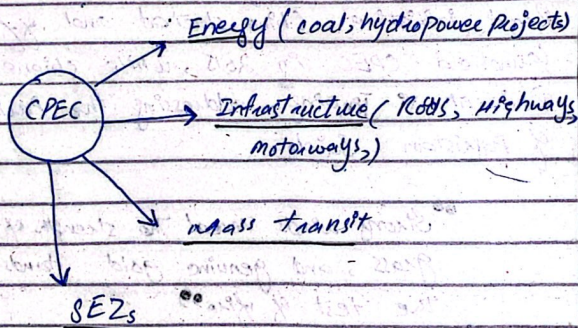 Energy ( coal, hydropower projects)
CPEC
Infrastructure ( Roads, Highways,
motorways,)
Mass transit
SEZs